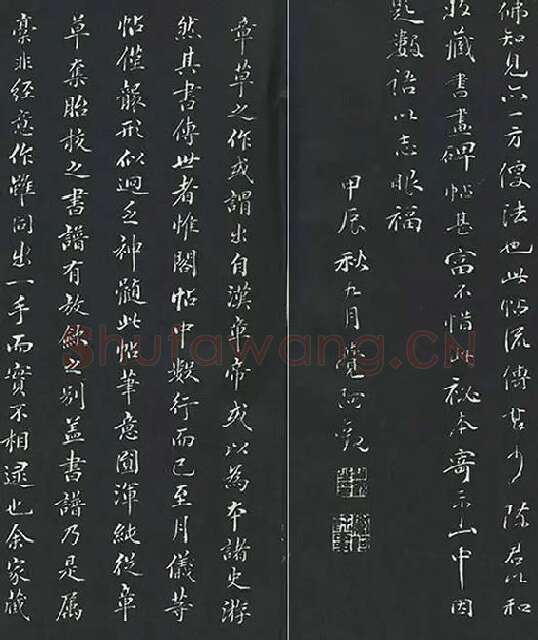 佛知見六一方便法也此帖流傳甚少陳君以和
收藏書畫碑帖甚富不惜此祕本寄示山中因
題數語以志眼福
甲辰秋九月覺阿觀
章草之作或謂出自漢章帝或以為本諸史游
然其書傳世者惟閣帖中數行而已至月儀等
帖僅襲形似迥乏神髓此帖筆意圓渾純從章
草奪胎校之書譜有放斂之別蓋書譜乃是屬
稾非經意作雖同出一手而實不相逮也余家藏
Shufawang.CN